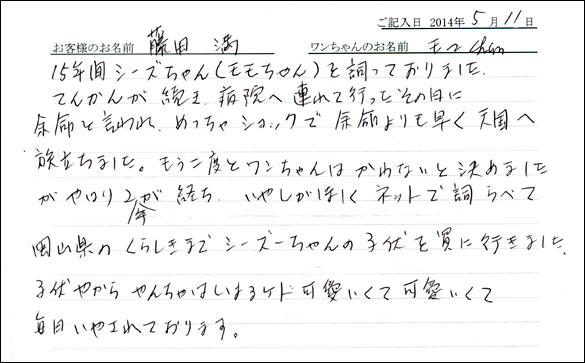 ご記入日 2014年 5月 11日
お客様のお名前 藤田 満 ワンちゃんのお名前 モコ chan
15年間シーズちゃん(モモちゃん)と詞っておりました。
てんかんが続き、病院へ連れて行ったその日に
余命と言われ、めっちゃショックで余命よりも早く天国へ
旅立ちました。もう二度とワンちゃんはかわないと決めました
がやはり2年が経ち、いやしがほしくネットで詞らべて
岡山県のくらしきまでシーズーちゃんの子伏を買に行きました。
子伏やからやんちゃはしはるケド可愛いくて可愛いくて
毎日いやされております。